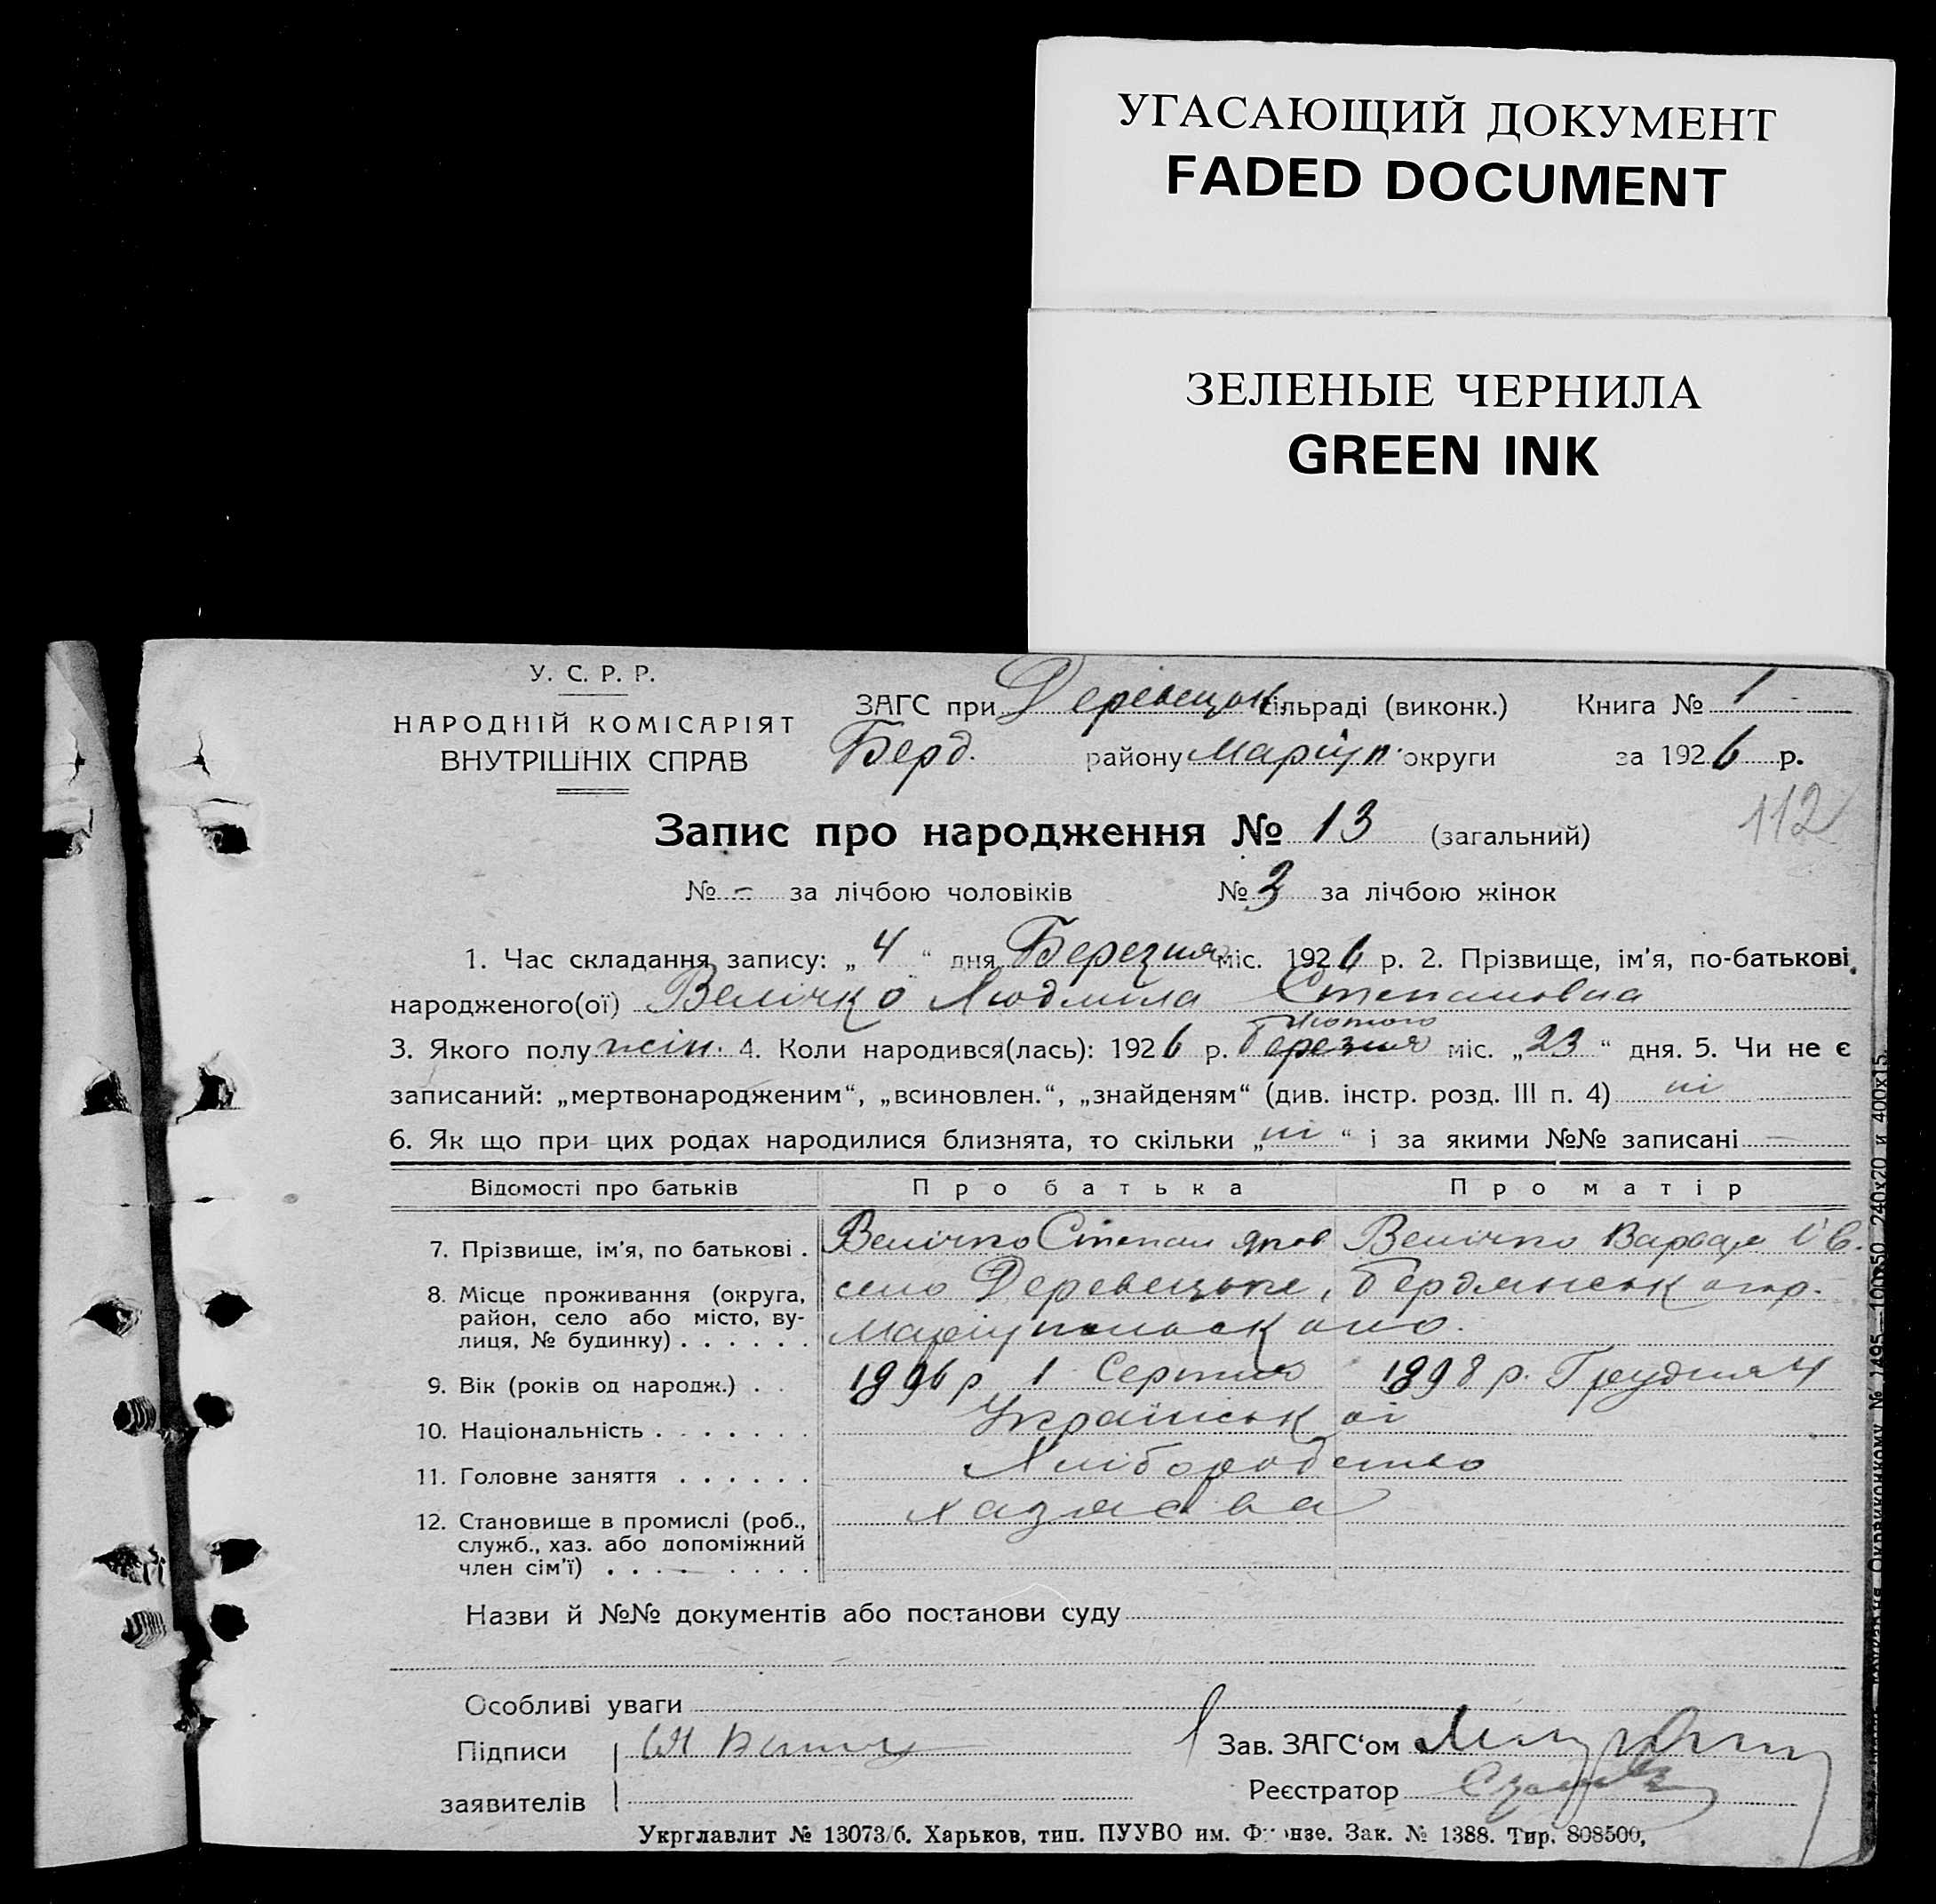 УГАСАЮЩИЙ ДОКУМЕНТ
FADED DOCUMENT
ЗЕЛЕНЫЕ ЧЕРНИЛА
GREEN INK
У. С. Р. Р.
НАРОДНІЙ КОМІСАРІЯТ
ВНУТРІШНІХ СПРАВ
ЗАГС при Деревецьк. сільраді (виконк.) Книга № 1
Берд. району Маріуп. округи за 1926 р.
112
Запис про народження № 13 (загальний)
№ - за лічбою чоловіків № 3 за лічбою жінок
1. Час складання запису: „ 4 “ дня Березня міс. 1926 р. 2. Прізвище, ім'я, по-батькові
народженого(ої) Велічко Людмила Степановна
Лютого
3. Якого полу жін. 4. Коли народився(лась): 1926 р. березня міс. „23“ дня. 5. Чи не є
записаний: „мертвонародженим“, „всиновлен.“, „знайденям“ (див. інстр. розд. III п. 4) ні
6. Як що при цих родах народилися близнята, то скільки „ні“ і за якими №№ записані —
Відомості про батьків Про батька Про матір
7. Прізвище, ім'я, по батькові . Велічко Степан Яков Велічко Варвара Ів.
8. Місце проживання (округа, село Деревецьке, Бердянськ
район, село або місто, ву-
лиця, № будинку) . . . . . .
9. Вік (років од народж.) . . 1896 р 1 Серпня 1898 р. Грудня 4
10. Національність . . . . . . . Українськ оі
11. Головне заняття . . . . . . Хліборобство
12. Становище в промислі (роб.,
служб., хаз. або допоміжний
член сім'ї) . . . . . . . .
Назви й №№ документів або постанови суду
Особливі уваги
Підписи
Зав. ЗАГС'ом
заявителів
Реєстратор
Укрглавлит № 13073/б. Харьков, тип. ПУУВО им. Фрунзе. Зак. № 1388. Тир. 808500,